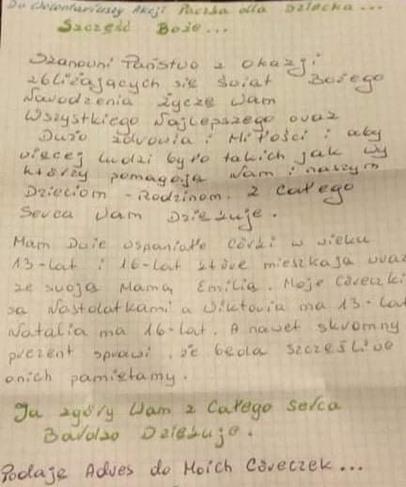 Do Wolontariuszy Akcji Paczka dla Dziecka...
Szczęść Boże...
Szanowni Państwo z okazji
zbliżających się świat Bożego
Narodzenia życzę Wam
Wszystkiego Najlepszego oraz
Dużo zdrowia i Miłości i aby
więcej ludzi było takich jak wy
którzy pomagają Nam i naszym
Dzieciom - Rodzinom. Z całego
Serca Wam Dziękuje.
Mam Dwie wspaniałe córki w wieku
13-lat i 16-lat które mieszkaja wraz
ze swoja Mama Emilia. Moje Córeczki
sa Nastolatkami a Wiktoria ma 13-lat
Natalia ma 16-lat. A nawet skromny
prezent sprawi, że beda szcześliwe
onich pamietamy.
Ja zgóry Wam z Całego Serca
Bardzo Dziekuje.
Podaje Adres do Moich Córeczek...